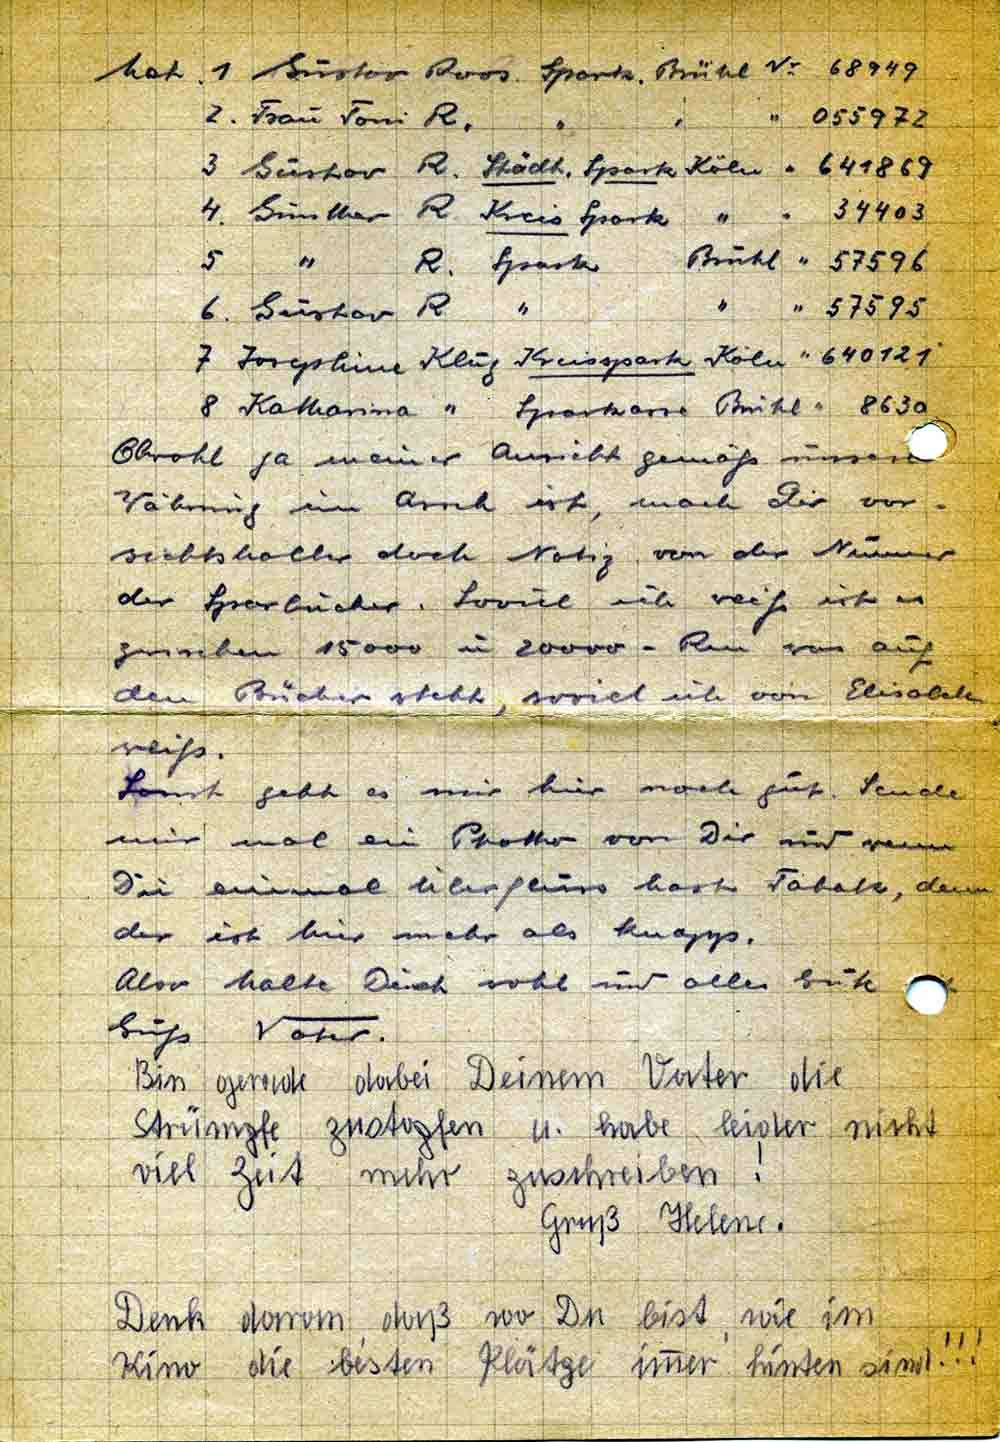 hat. 1 Gustav Roos. Spark. Brühl Nr 68949
2. Frau Toni R. " " " 055972
3 Gustav R. Städt. Spark Köln " 641869
4. Günther R Kreis Spark " " 34403
5 " R. Spark Brühl " 57596
6. Gustav R " " " 57595
7 Josephine Klug Kreisspark Köln " 640121
8 Katharina " Sparkasse Brühl " 8630
Obwohl ja meiner Ansicht gemäß unsere
Währung im Arsch ist, mach Dir vor-
sichtshalber doch Notiz von der Nummer
der Sparbücher. Soviel ich weiß ist es
zwischen 15000 u 20000 - Rm was auf
den Bücher steht, soviel ich von Elisabeth
weiß.
Sonst geht es mir hier noch gut. Sende
mir mal ein Photho von Dir und wenn
Du einmal überfluss hast Tabak, denn
der ist hier mehr als knapp.
Also halte Dich wohl und alles Gute
Gruß Vater.
Bin gerade dabei Deinem Vater die
Strümpfe zustopfen u. habe leider nicht
viel Zeit mehr zuschreiben!
Gruß Helene.
Denk daran, daß wo Du bist, wie im
Kino die besten Plätze immer hinten sind!!!